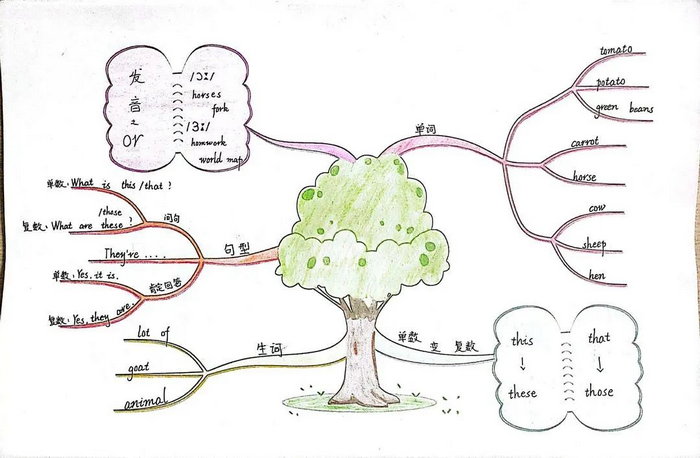 发
音
之
or
/ɔː/
horses
fork
/ɜː/
homwork
world map
单词
tomato
potato
green beans
carrot
horse
cow
sheep
hen
句型
问句
单数: What is this / that ?
/these
复数: What are these ?
They're ....
肯定回答
单数: Yes, it is.
复数: Yes, they are.
生词
lot of
goat
animal
单数 变 复数
this
↓
these
that
↓
those